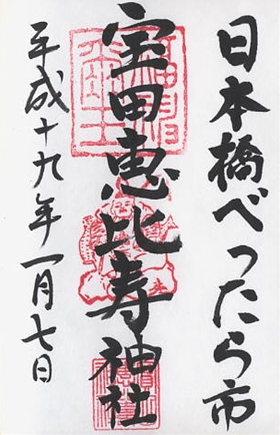 日本橋べったら市
宝田恵比寿神社
平成十九年一月七日